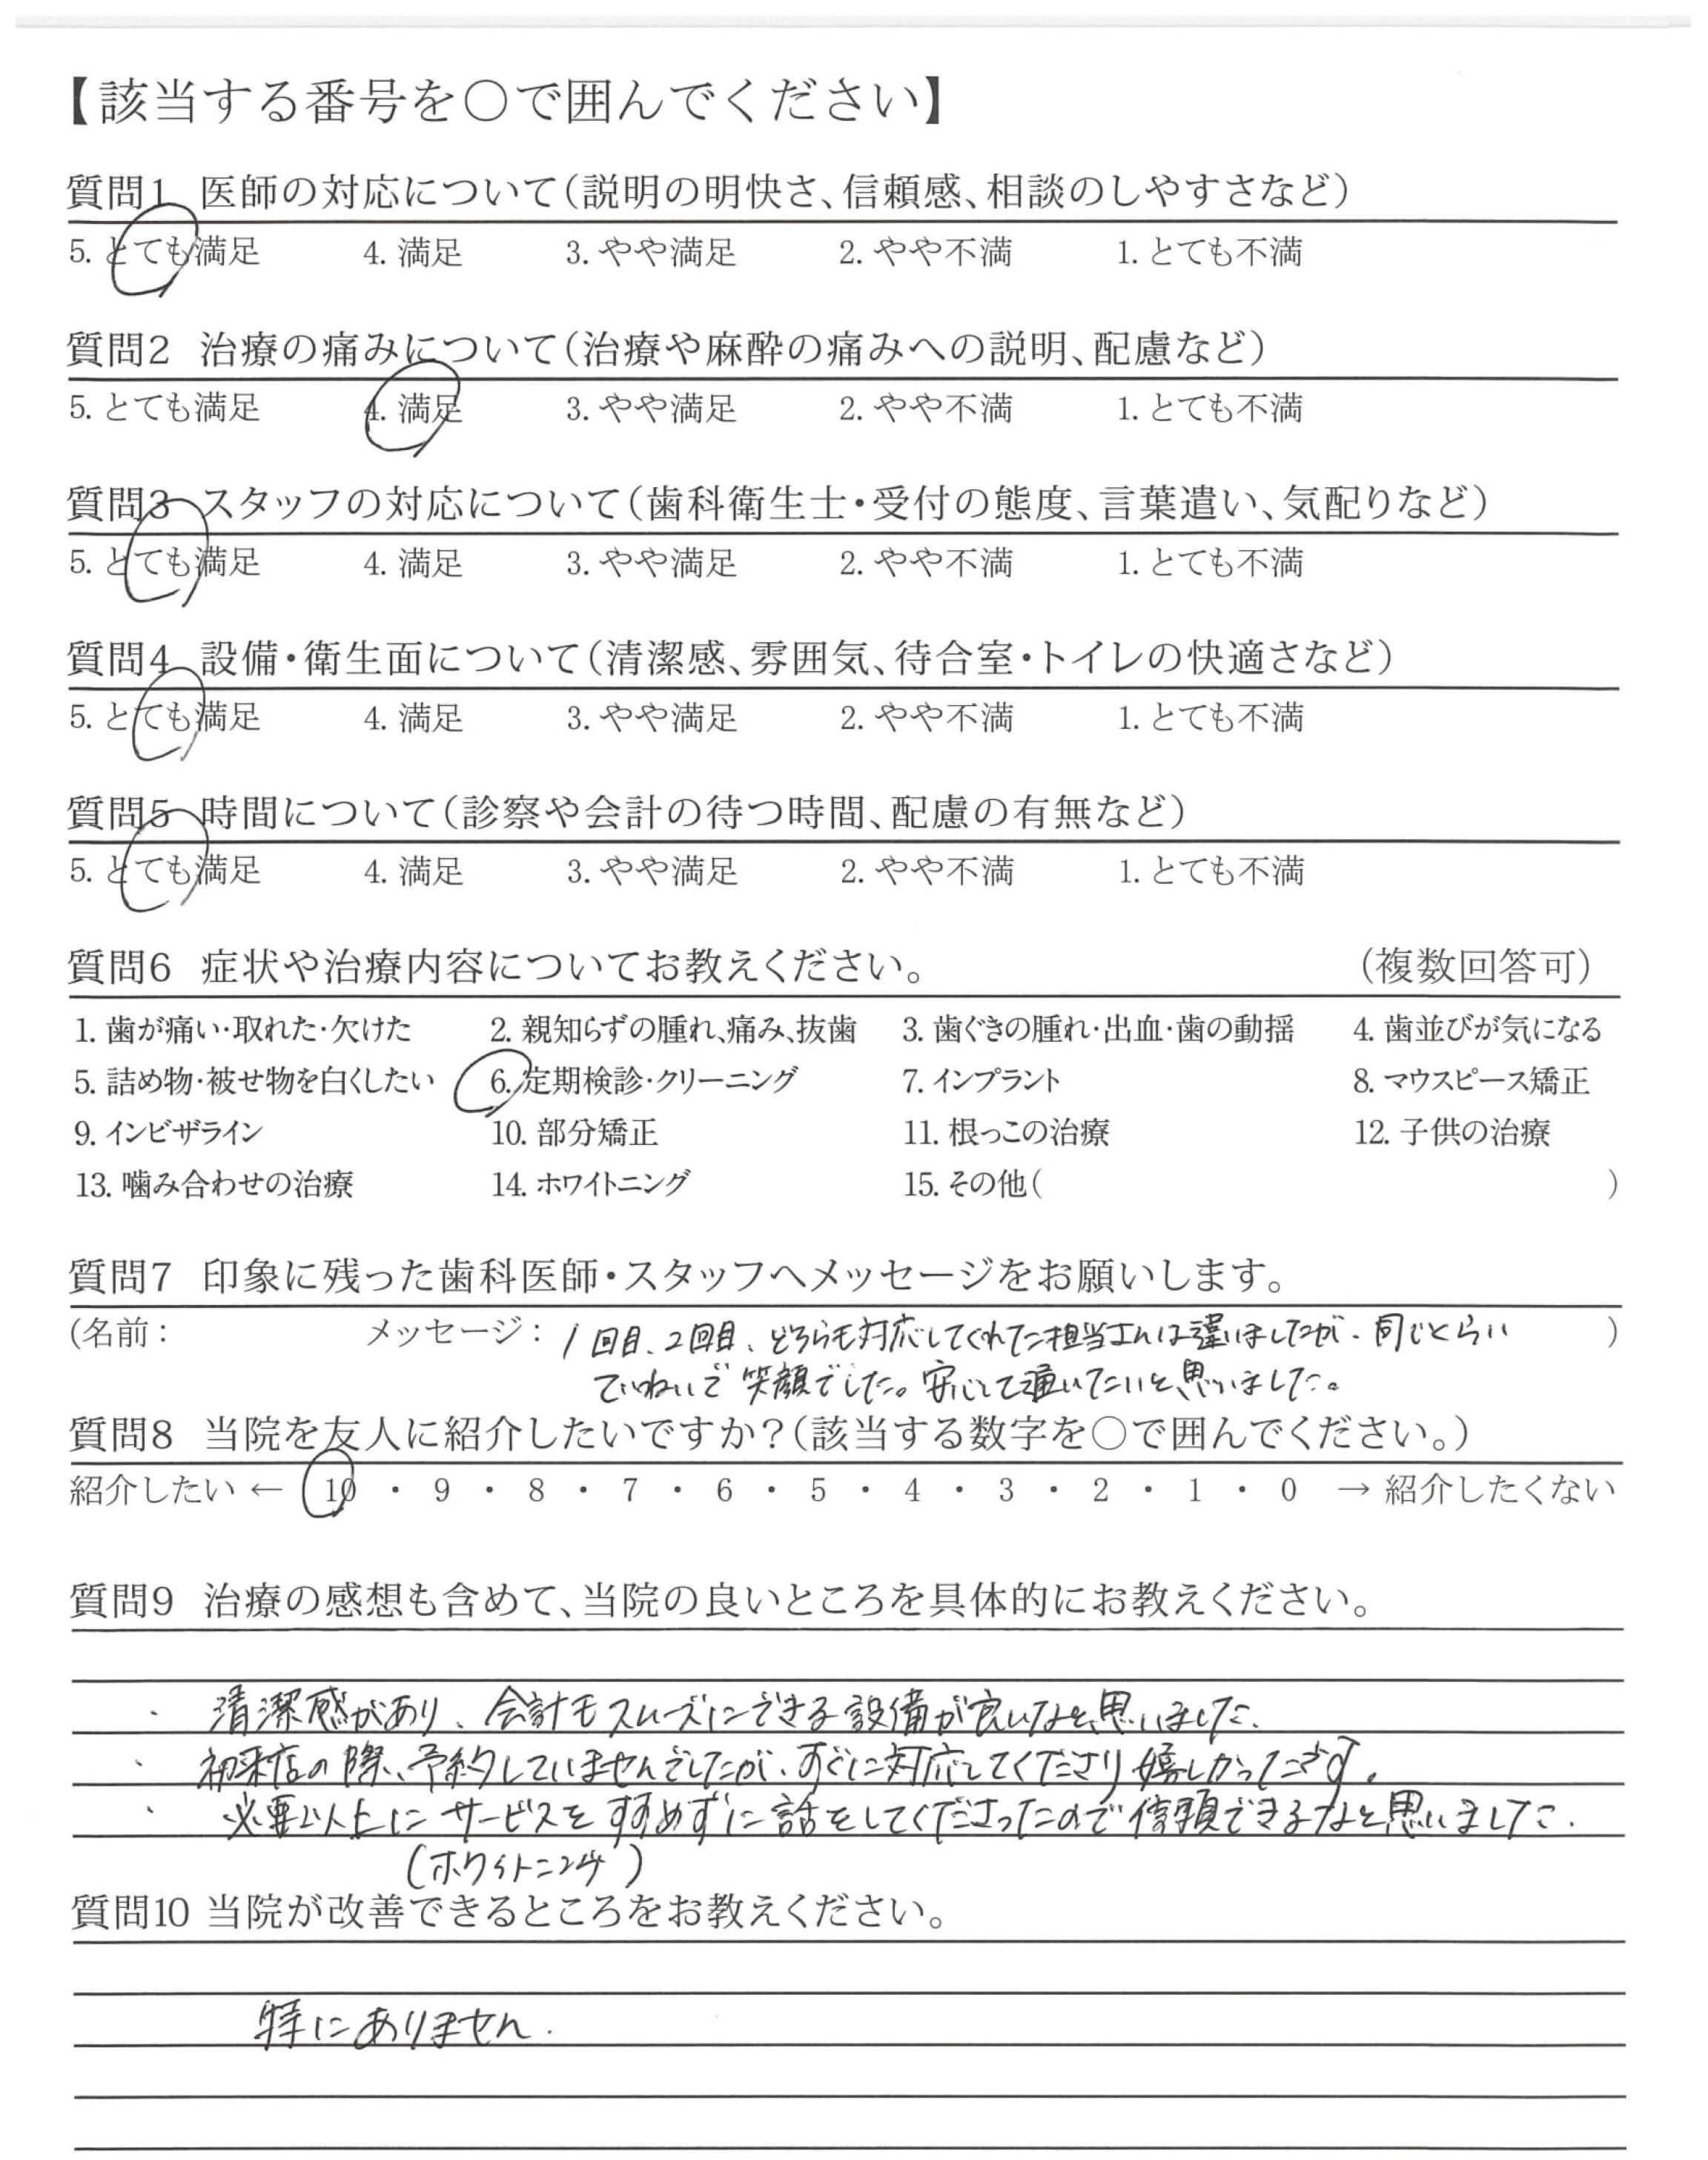 【該当する番号を○で囲んでください】
質問1 医師の対応について(説明の明快さ、信頼感、相談のしやすさなど)
5. とても満足 4. 満足 3. やや満足 2. やや不満 1. とても不満
質問2 治療の痛みについて(治療や麻酔の痛みへの説明、配慮など)
5. とても満足 4. 満足 3. やや満足 2. やや不満 1. とても不満
質問3 スタッフの対応について(歯科衛生士・受付の態度、言葉遣い、気配りなど)
5. とても満足 4. 満足 3. やや満足 2. やや不満 1. とても不満
質問4 設備・衛生面について(清潔感、雰囲気、待合室・トイレの快適さなど)
5. とても満足 4. 満足 3. やや満足 2. やや不満 1. とても不満
質問5 時間について(診察や会計の待つ時間、配慮の有無など)
5. とても満足 4. 満足 3. やや満足 2. やや不満 1. とても不満
質問6 症状や治療内容についてお教えください。 (複数回答可)
1. 歯が痛い・取れた・欠けた 2. 親知らずの腫れ、痛み、抜歯 3. 歯ぐきの腫れ・出血・歯の動揺 4. 歯並びが気になる
5. 詰め物・被せ物を白くしたい 6. 定期検診・クリーニング 7. インプラント 8. マウスピース矯正
9. インビザライン 10. 部分矯正 11. 根っこの治療 12. 子供の治療
13. 噛み合わせの治療 14. ホワイトニング 15. その他( )
質問7 印象に残った歯科医師・スタッフへメッセージをお願いします。
(名前: メッセージ: 1回目、2回目、どちらも対応してくれた担当さんは違いましたが、同じくらい )
ていねいで笑顔でした。安心して通いたいと思いました。
質問8 当院を友人に紹介したいですか?(該当する数字を○で囲んでください。)
紹介したい ← 10 ・ 9 ・ 8 ・ 7 ・ 6 ・ 5 ・ 4 ・ 3 ・ 2 ・ 1 ・ 0 → 紹介したくない
質問9 治療の感想も含めて、当院の良いところを具体的にお教えください。
・ 清潔感があり、会計もスムーズにできる設備が良いなと思いました。
・ 初来店の際、予約していませんでしたが、すぐに対応してくださり嬉しかったです。
・ 必要以上にサービスをすすめずに話をしてくださったので信頼できるなと思いました。
(ホワイトニング)
質問10 当院が改善できるところをお教えください。
特にありません.